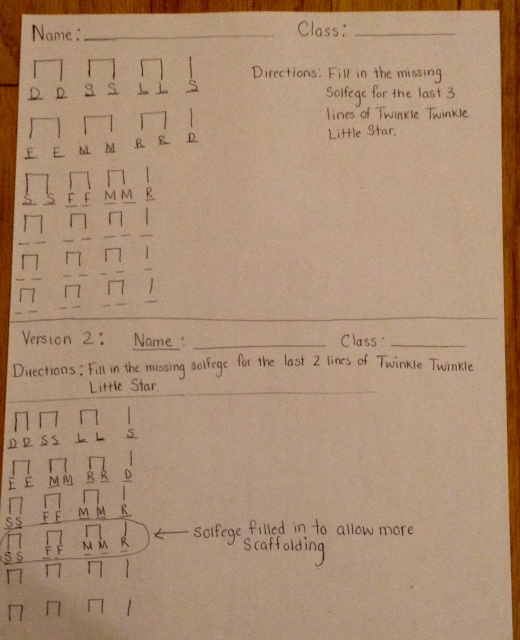 Name: Class:
D D S S L L S
Directions: Fill in the missing
Solfege for the last 3
lines of Twinkle Twinkle
Little Star.
F F M M R R D
S S F F M M R
Version 2: Name: Class:
Directions: Fill in the missing solfege for the last 2 lines of Twinkle Twinkle
Little Star.
D D S S L L S
F F M M R R D
S S F F M M R
S S F F M M R
Solfege filled in to allow more
Scaffolding